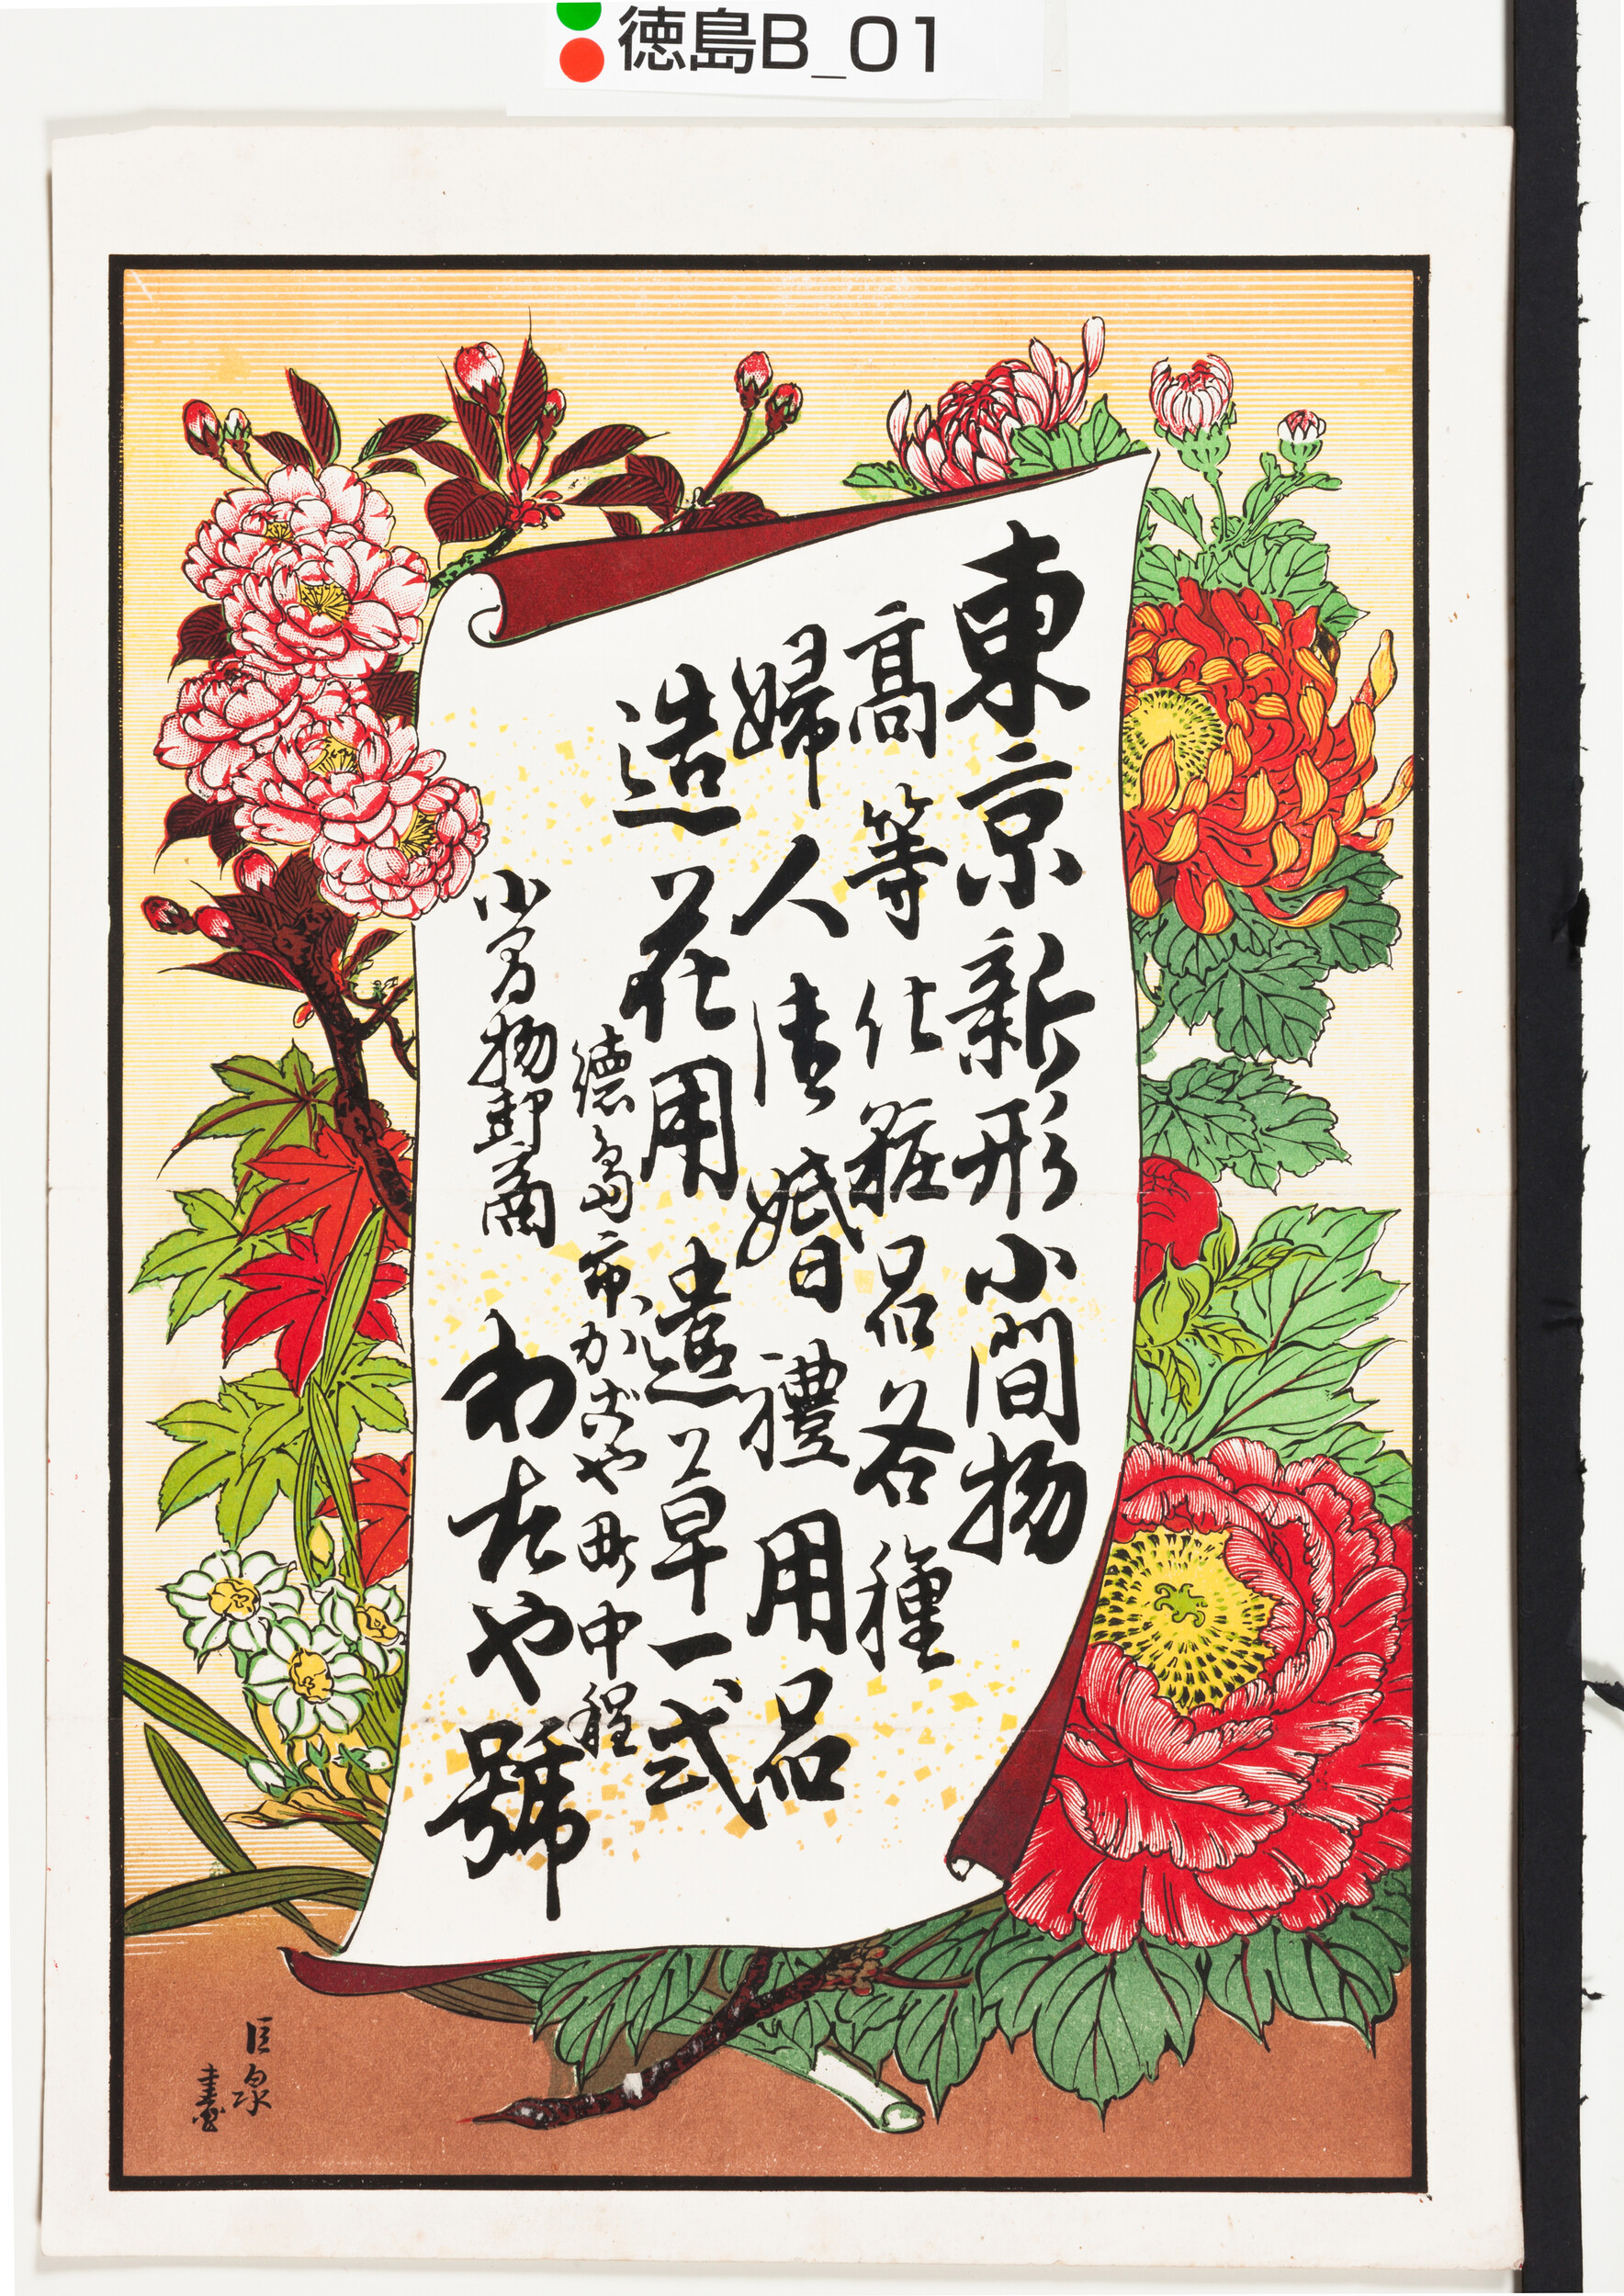 徳島B_01
東京新形小間物
高等化粧品各種
婦人 婚禮用品
造花用 草一式
德島市かごや町中程
小間物卸商
わたや號
巨泉
畫